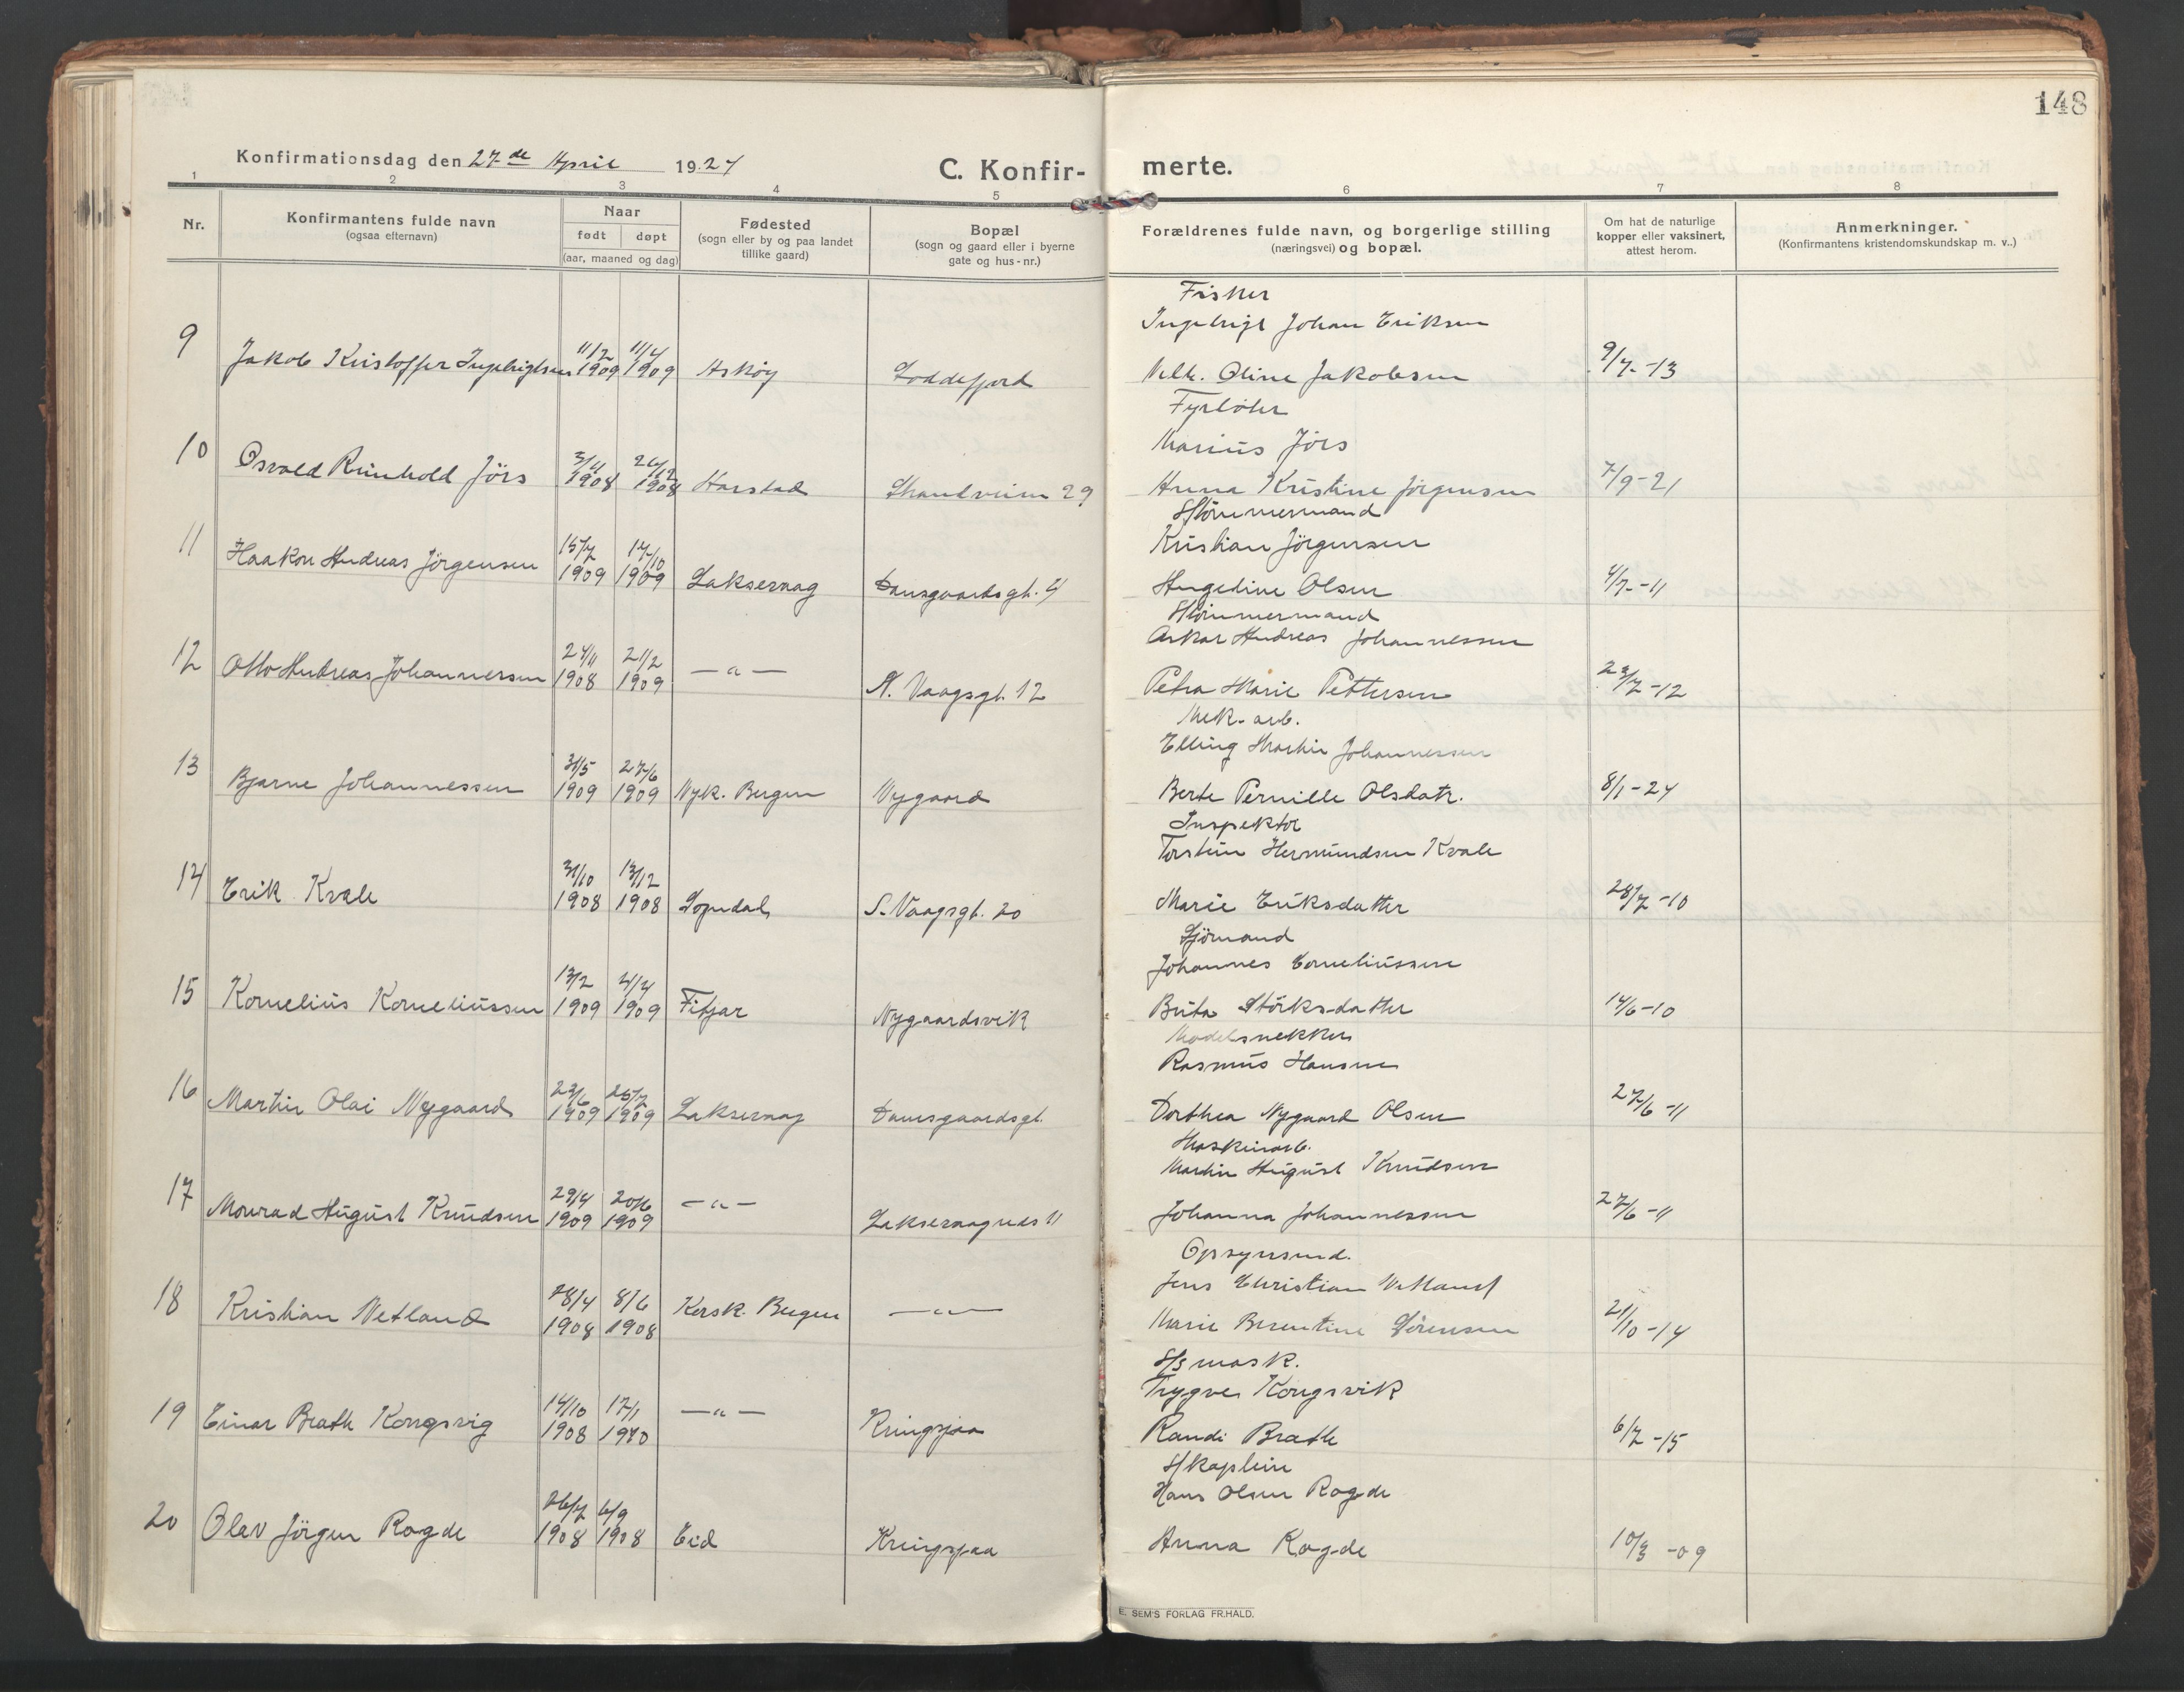 148
Konfirmationsdag den 27-de April 1924
C. Konfir- merte.
1 2 3 4 5 6 7 8
Nr.
Konfirmantens fulde navn
(ogsaa efternavn)
Naar
født døpt
(aar, maaned og dag)
Fødested
(sogn eller by og paa landet
tillike gaard)
Bopæl
(sogn og gaard eller i byerne
gate og hus-nr.)
Forældrenes fulde navn, og borgerlige stilling
(næringsvei) og bopæl.
Om hat de naturlige
kopper eller vaksinert,
attest herom.
Anmerkninger.
(Konfirmantens kristendomskundskap m. v..)
Fisker
Ingebrigt Johan Eriksen
9 Jakob Kristoffer Ingebrigtsen 11/2 1909 11/4 1909 Askøy Loddefjord
Oline Jakobsen 9/7-13
Fyrbøter
Marius Jörs
10 Osvald Reinhold Jörs 3/11 1908 26/12 1908 Harstad Skandveien 29
Anna Kristine Jörgensen 7/9-21
Tömmermand
Kristian Jörgensen
11 Haakon Andreas Jörgensen 15/7 1909 17/10 1909 Laksevaag Damsgaardsgt. 4
Angedine Olsen 4/7-11
Tömmermand
Oskar Andreas Johannessen
12 Otto Andreas Johannessen 24/11 1908 21/2 1909 —"— N. Vaagsgt. 12
Petra Marie Pettersen 23/7-12
Mek. arb.
Elling Martin Johannessen
13 Bjarne Johannessen 31/5 1909 27/6 1909 Nyk. Bergen Nygaard
Berte Pernille Olsdatr. 8/1-24
Inspektör
Torstein Hermundsen Kvale
14 Erik Kvale 31/10 1908 13/12 1908 Sogndal S. Vaagsgt. 20
Marie Eriksdatter 28/7-10
Sjömand
Johannes Corneliussen
15 Kornelius Korneliussen 13/2 1909 4/4 1909 Fitjar Nygaardsvik
Brita Störksdatter 14/6-10
Modelsnekker
Rasmus Hansen
16 Martin Olai Nygaard 23/6 1909 25/7 1909 Laksevaag Damsgaardsgt.
Dorthea Nygaard Olsen 27/6-11
Maskinarb.
Martin August Knudsen
17 Monrad August Knudsen 29/4 1909 20/6 1909 —"— Laksevaagneds 11
Johanna Johannessen 27/6-11
Opsynsmd.
Jens Christian Vetland
18 Kristian Vetland 28/4 1908 8/6 1908 Korsk. Bergen —"—
Marie Berentine Sörensen 21/10-14
S/S mask.
Trygve Kongsvik
19 Einar Brath Kongsvig 14/10 1908 17/1 1910 —"— Kringsjaa
Randi Brath 6/7-15
S/kaptein
Hans Olsen Rogde
20 Olav Jörgen Rogde 26/7 1908 6/9 1908 Eid Kringsjaa
Anna Rogde 10/3-09
E. SEM'S FORLAG FR.HALD.